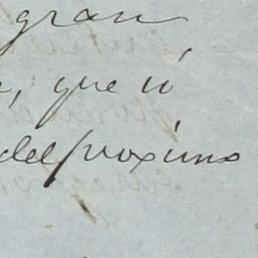 gran
, que ú
del próximo